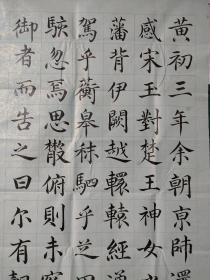 黄初三年余朝京師還
感宋玉對楚王神女之
藩背伊闕越轘轅經通
駕乎蘅皋秣駟乎芝田
駭忽焉思散俯則未察
御者而告之曰尔有覿